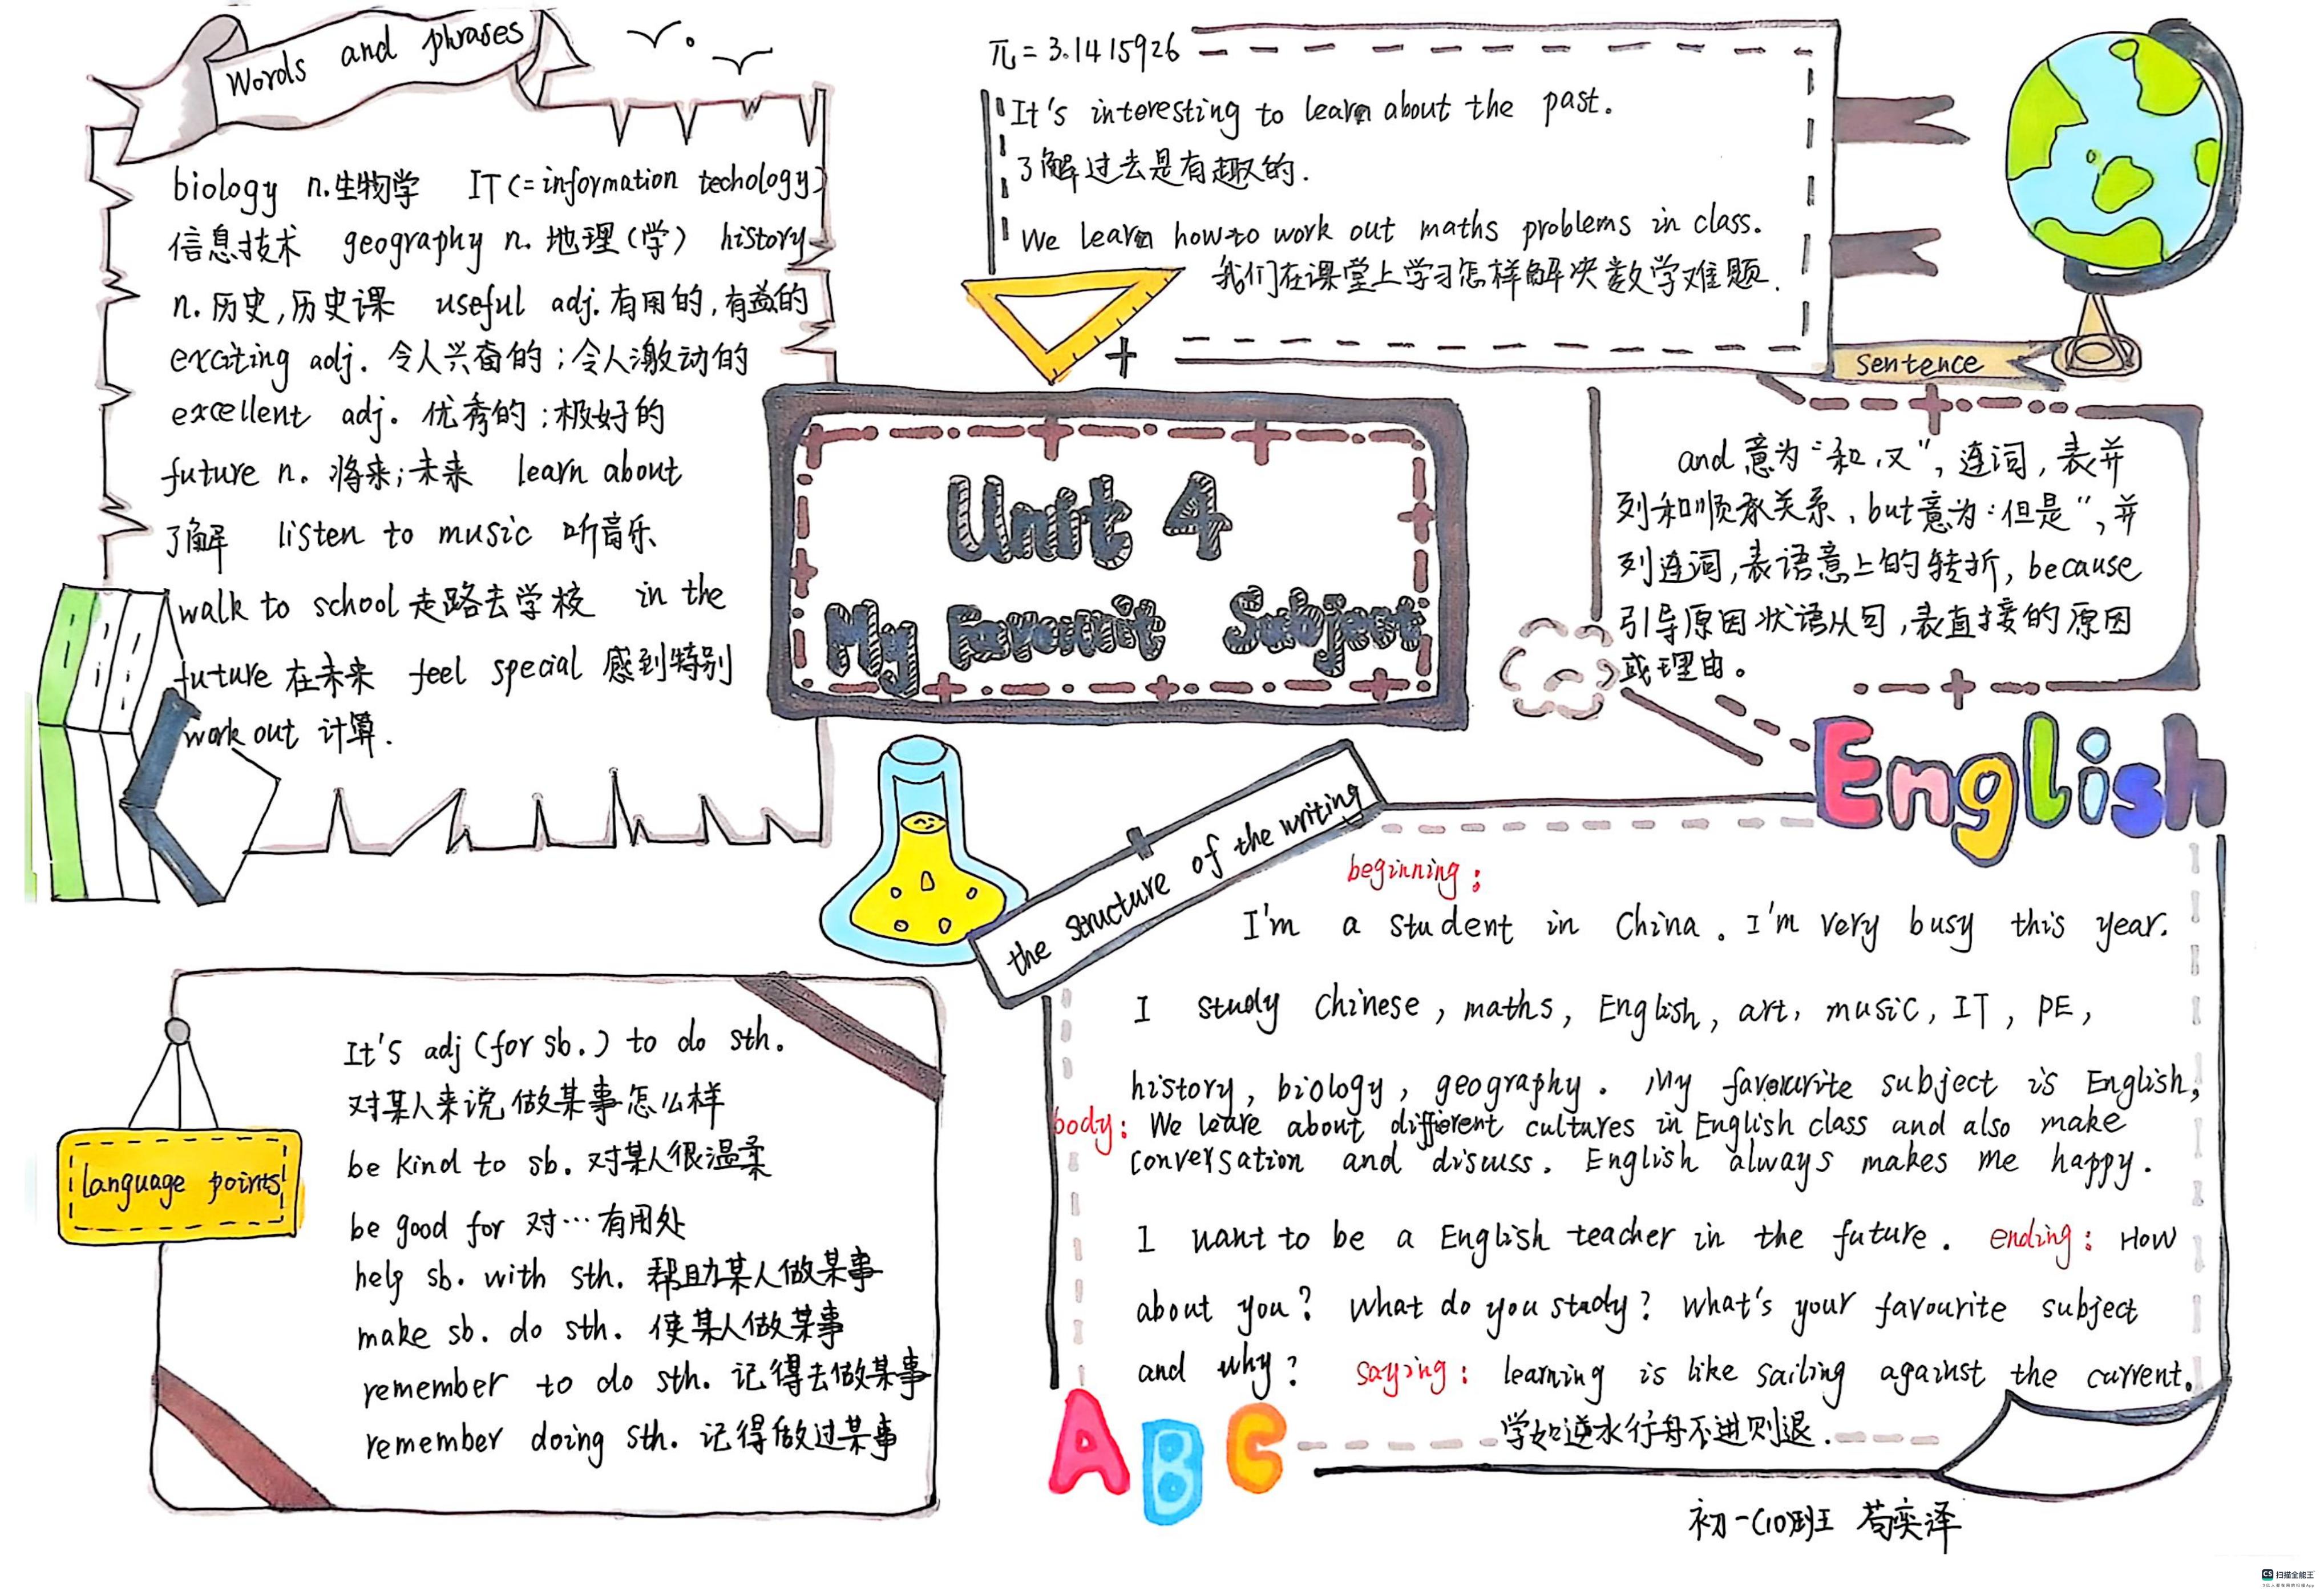 Words and phrases
biology n.生物学 IT(=information techology)
信息技术 geography n.地理(学) history
n.历史,历史课 useful adj.有用的,有益的
exciting adj. 令人兴奋的;令人激动的
excellent adj. 优秀的;极好的
future n. 将来;未来 learn about
了解 listen to music 听音乐
walk to school 走路去学校 in the
future 在未来 feel special 感到特别
work out 计算.
π=3.1415926
It's interesting to learn about the past.
了解过去是有趣的.
We learn how to work out maths problems in class.
我们在课堂上学习怎样解决数学难题.
Sentence
Unit 4
My Favourit Subject
and意为“和,又”,连词,表并
列和顺承关系,but意为:但是”,并
列连词,表语意上的转折,because
引导原因状语从句,表直接的原因
或理由。
English
the structure of the writing
beginning:
I'm a student in China. I'm very busy this year.
I study Chinese, maths, English, art, music, IT, PE,
history, biology, geography. My favourite subject is English,
body: We leare about different cultures in English class and also make
conversation and discuss. English always makes me happy.
I want to be a English teacher in the future. ending: How
about you? What do you study? What's your favourite subject
and why? saying: learning is like sailing against the current.
学如逆水行舟不进则退.
ABC
language points
It's adj (for sb.) to do sth.
对某人来说做某事怎么样
be kind to sb. 对某人很温柔
be good for 对…有用处
help sb. with sth. 帮助某人做某事
make sb. do sth. 使某人做某事
remember to do sth. 记得去做某事
remember doing sth. 记得做过某事
初一(10)班 苟奕泽
CS 扫描全能王
3亿人都在用的扫描App